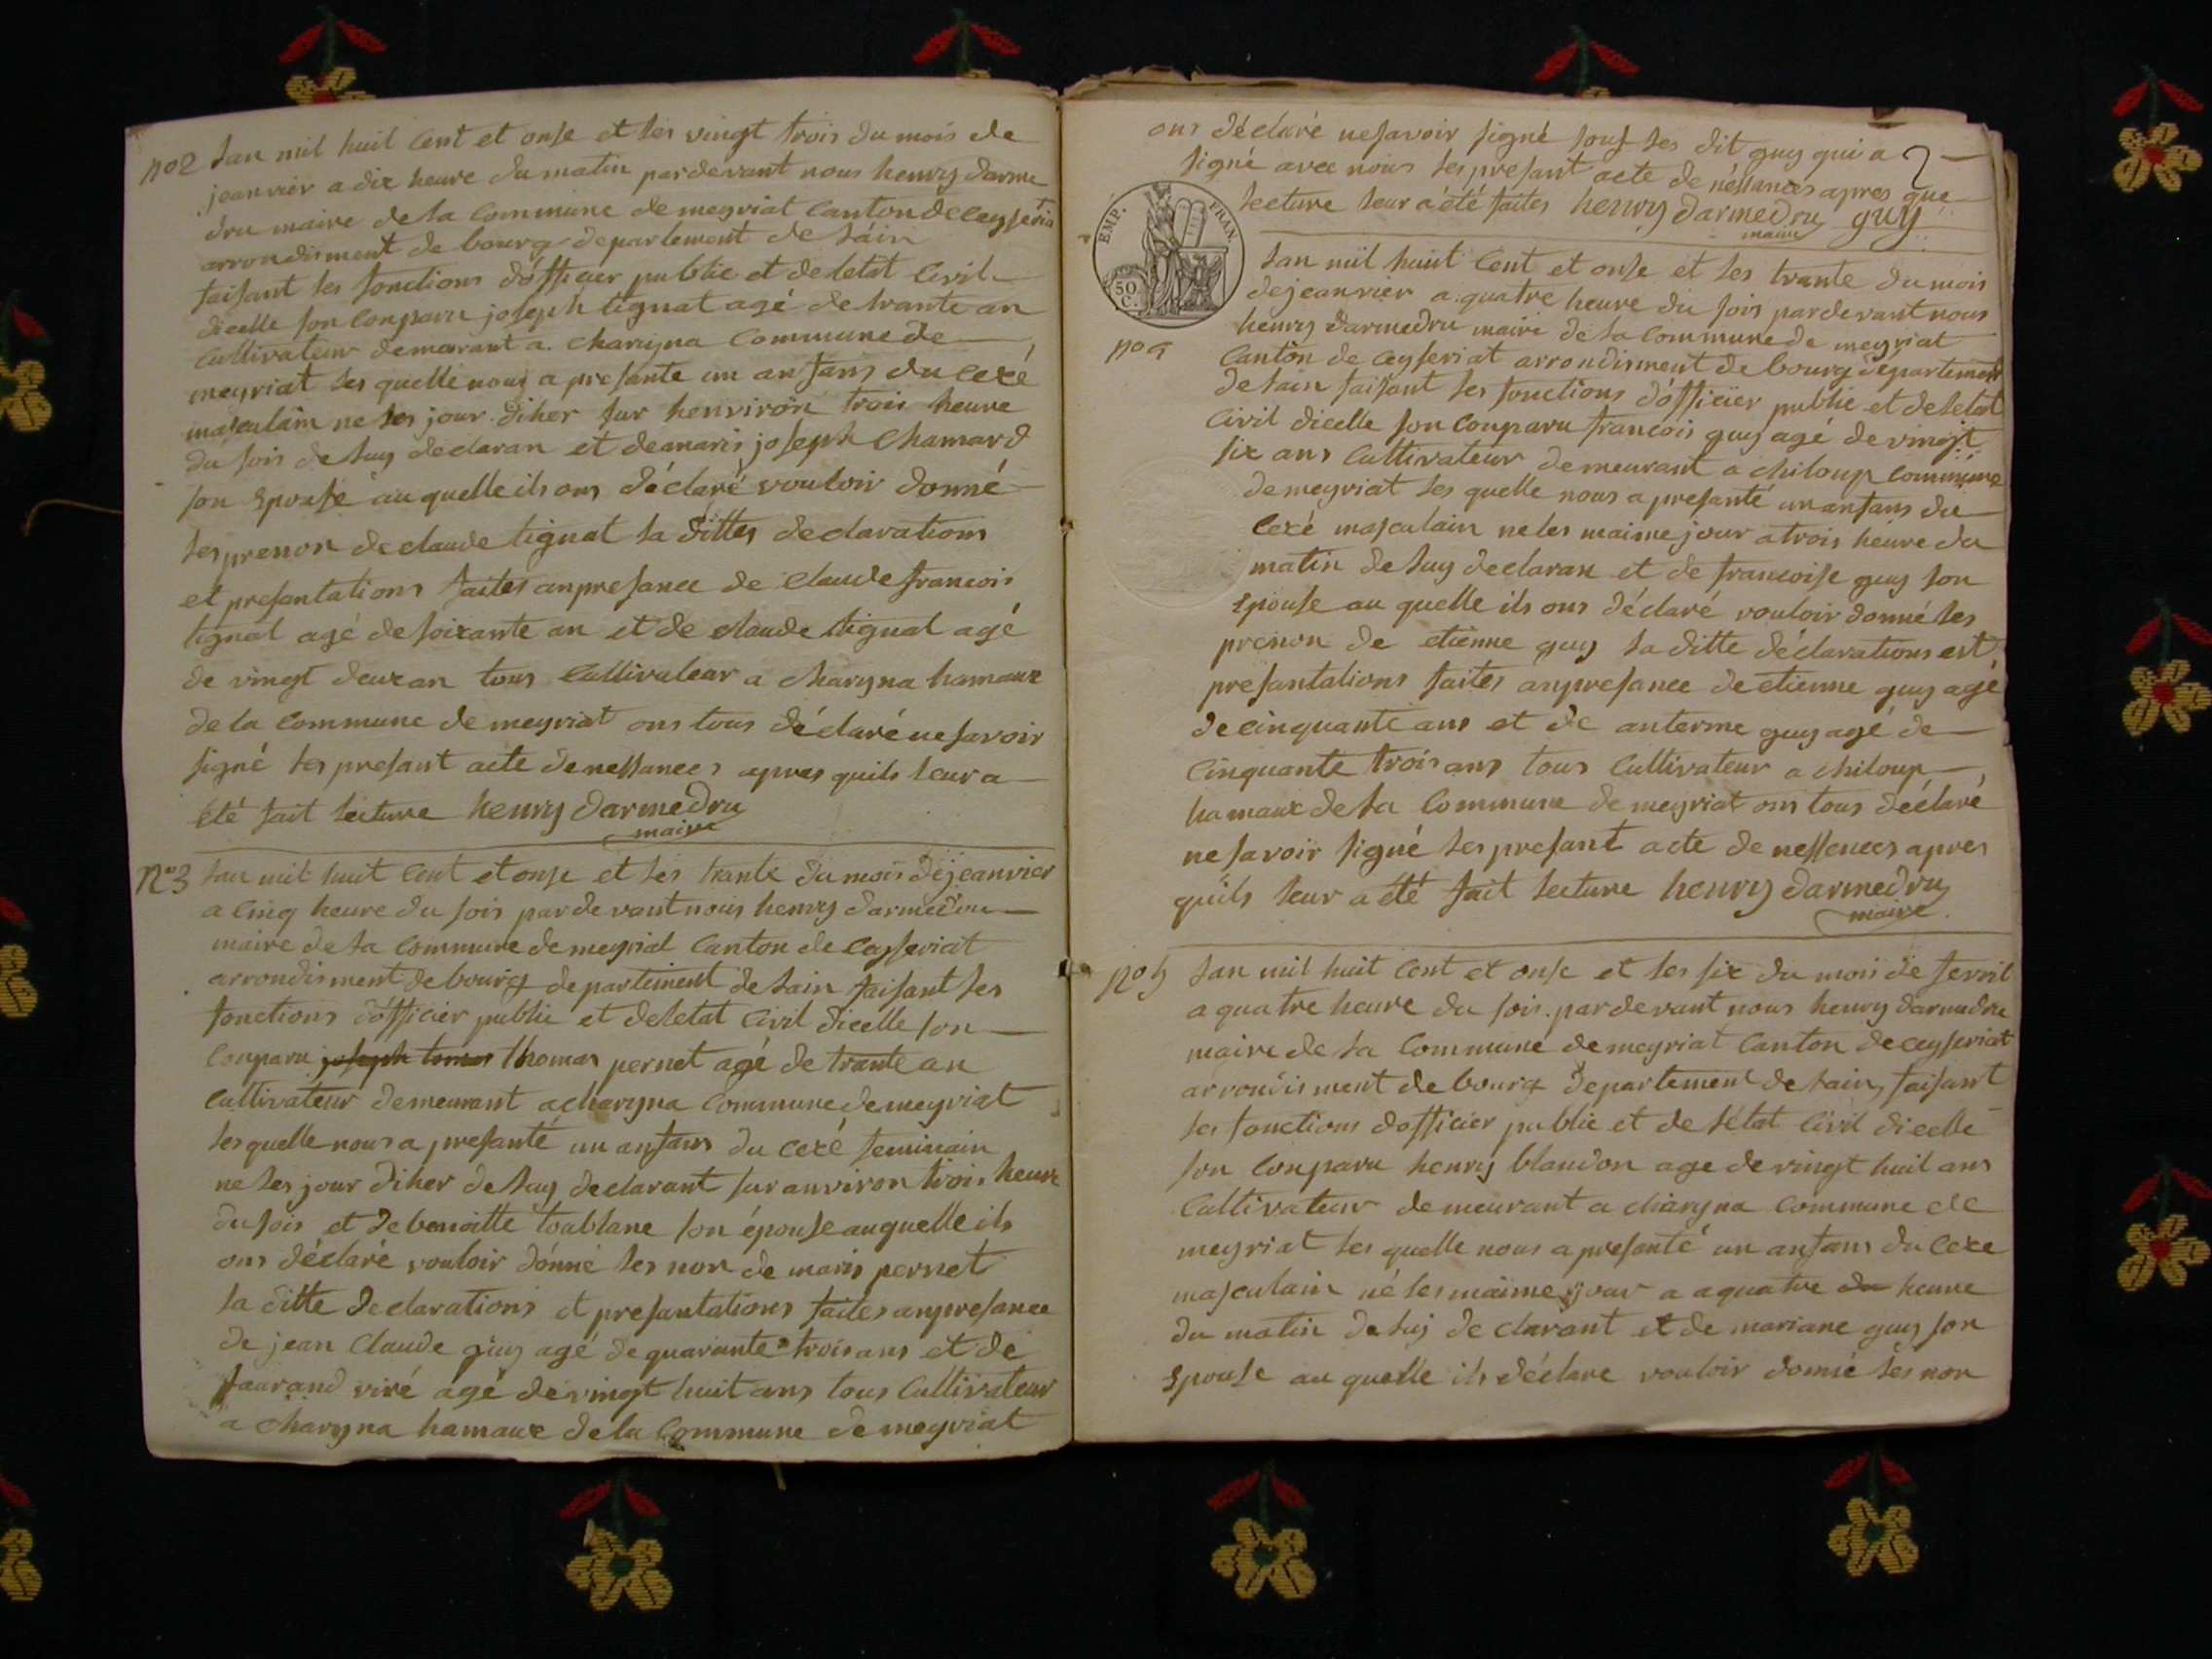 no2 Lan mil huit Cent et onse et les vingt trois du mois de
jeanvier a dix heure du matin pardevant nous henry darme
dru maire de la Commune de meyriat Canton de Ceyseria
arrondisment de bourg departement de Láin
faisant les fonctions d'officier public et deletat Civil
dicelle son Conparu joseph tignat agé de trante an
Cultivateur demeurant a charyna Commune de
meyriat les quelle nous a presante un anfans du Cexé
masculain ne les jour diher sur henviron trois heure
du soir de luy declaran et demarie joseph Chamard
son Epouse au quelle ils ons déclaré vouloir donné
les prenon de claude tignat la dittes declarations
et presantations faites anpresance de Claude francois
tignat agé de soixante an et de claude tignat agé
de vingt deux an tous Cultivateur a charyna hamaux
de la Commune de meyriat ons tous déclaré nesavoir
signé les presant acte denessances apres quils leur a
été fait lecture henry darmedru
maire
No3 Lan mil huit Cent et onse et les trante du mois dejeanvier
a Cinq heure du soir pardevant nous henry darmedru
maire de la Commune de meyriat Canton de Ceyseriat
arrondisment de bourg departement de Lain faisant les
fonctions d'officier public et deletat Civil dicelle son
Conparu joseph tomas thomas pernet agé de trante an
Cultivateur demeurant acharyna Commune demeyriat
les quelle nous a presanté un anfans du Cexé feminain
ne les jour diher de luy declarant sur anviron trois heure
du soir et de benoitte toublane son épouse auquelle ils
ons déclaré vouloir donné les non de marie pernet
la ditte declarations et presantations faites anpresance
de jean Claude guy agé de quarante trois ans et de
laurand viré agé de vingt huit ans tous Cultivateur
a charyna hamaux de la Commune de meyriat
ons déclaré nesavoir signé sous les dit guy qui a
signé avec nous les presant acte de néssances apres que
lecture leur a été faites henry darmedru guy
maire
EMP. FRAN.
50 C.
Lan mil huit Cent et onse et les trante du mois
dejeanvier a quatre heure du soir pardevant nous
henry darmedru maire de la Commune de meyriat
no4 Canton de Ceyseriat arrondisment de bourg departement
de Lain faisant les fonctions d'officier public et deletat
Civil dicelle son Conparu francois guy agé de vingt
six ans Cultivateur demeurant a chiloup Commune
demeyriat les quelle nous a presanté un anfans du
Cexé masculain ne les maime jour a trois heure du
matin de luy declaran et de francoise guy son
Epouse au quelle ils ons déclaré vouloir donné les
prenon de etienne guy la ditte déclarations est
presantations faites anpresance de etienne guy agé
de cinquante ans et de anterme guy agé de
Cinquante trois ans tous Cultivateur a chiloup
hamaux de la Commune de meyriat ons tous déclaré
nesavoir signé les presant acte de nessences apres
quils leur a été fait lecture henry darmedru
maire
no5 Lan mil huit Cent et onse et les six du mois de fevril
a quatre heure du soir pardevant nous henry darmedru
maire de la Commune de meyriat Canton de Ceyseriat
arrondisment de bourg departement de Lain faisant
les fonctions d'officier public et de létat Civil dicelle
son Conparu henry blandon age de vingt huit ans
Cultivateur demeurant a charyna Commune de
meyriat les quelle nous a presanté un anfans du Cexe
masculain né les maime jour a aquatre du heure
du matin de luy declarant et de mariane guy son
Epouse au quelle ils déclare vouloir donné les non